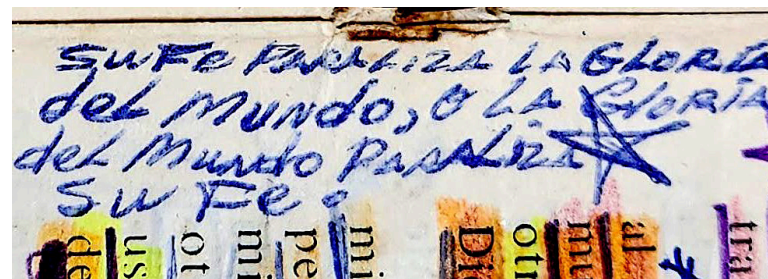 SU FE PARALIZA LA GLORIA
del MUNdo, O LA GLORIA
del MUNdo PARALIZA
SU FE.
de
us
ot
mi
pe
mi
Di
otr
mu
al
tra